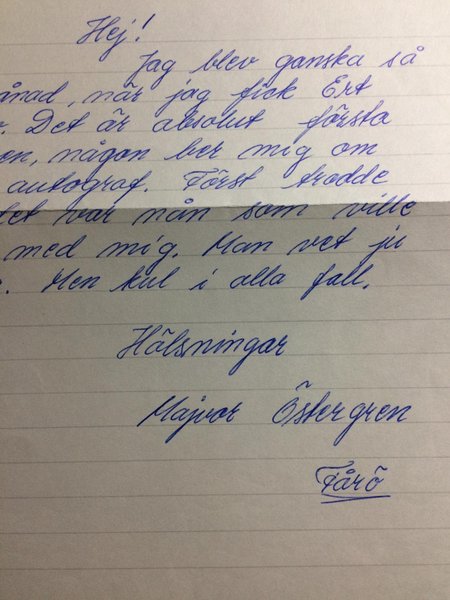 Hej!
Jag blev ganska så
ånad, när jag fick Ert
. Det är absolut första
en, någon ber mig om
autograf. Först trodde
det var nån som ville
med mig. Man vet ju
. Men kul i alla fall.
Hälsningar
Majvor Östergren
Fårö